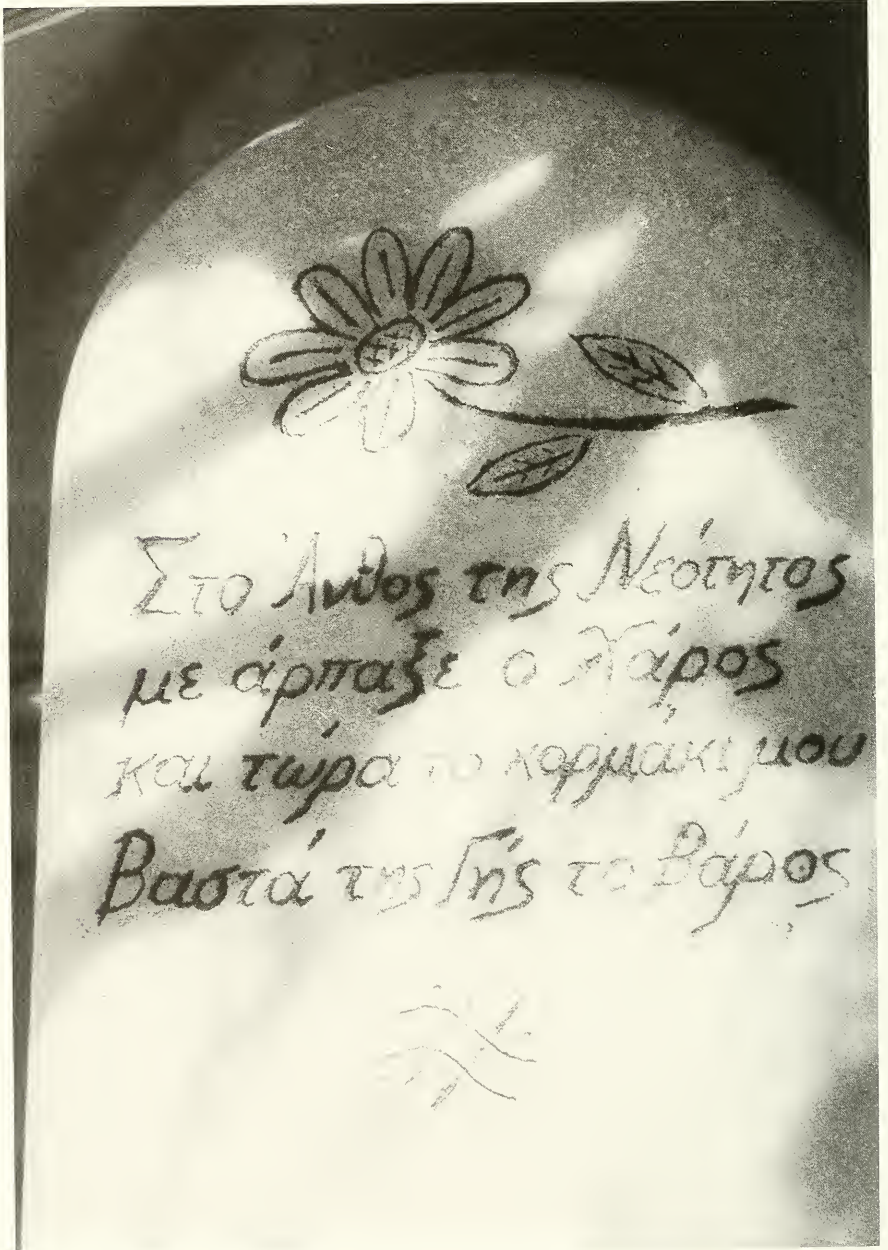 Στο Άνθος της Νεότητος
με άρπαξε ο Χάρος
και τώρα το κορμάκι μου
Βαστά της Γής το Βάρος